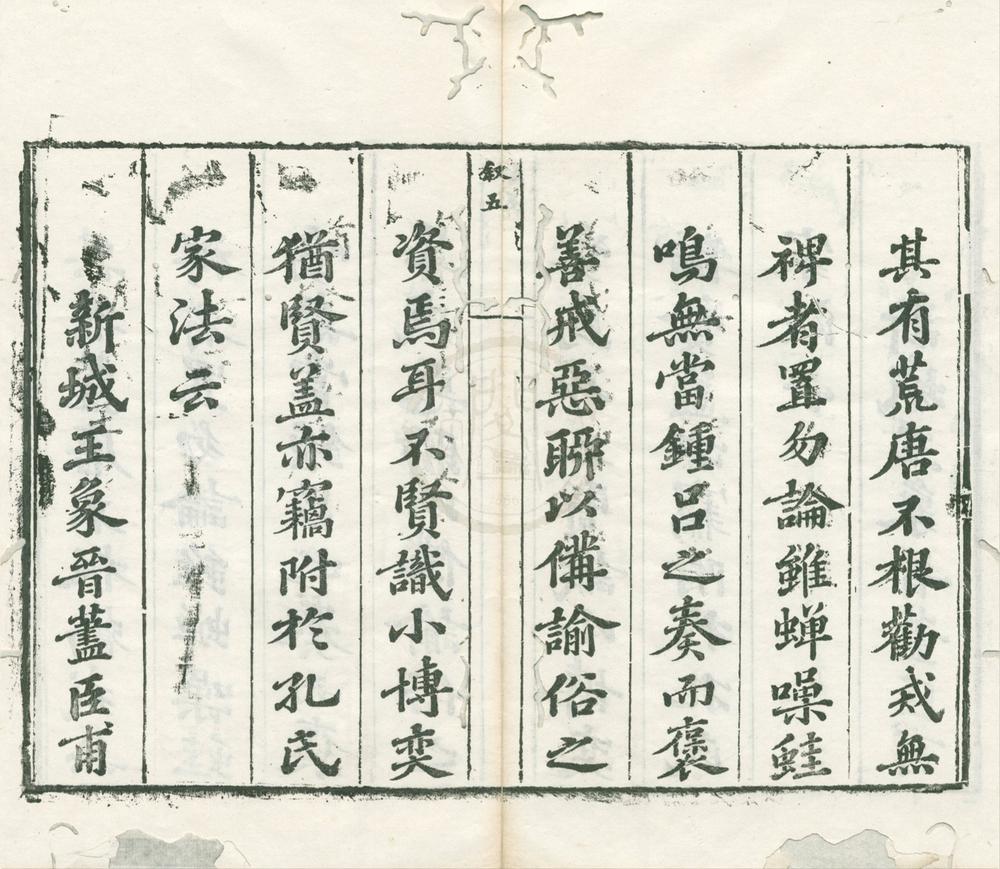 其有荒唐不根勸戒無
禆者置勿論雖蟬噪鼃
鳴無當鍾呂之奏而褒
善戒惡聊以備諭俗之
叙五
資焉耳不賢識小博奕
猶賢盖亦竊附於孔氏
家法云
新城王象晉藎臣甫